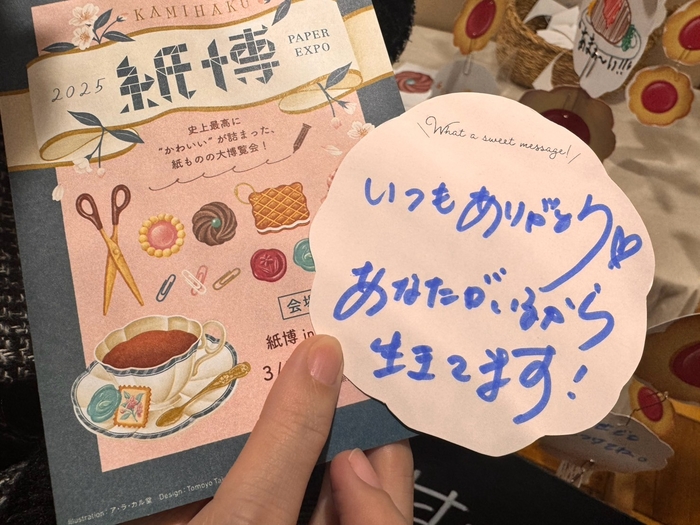 KAMIHAKU
2025
紙博
PAPER
EXPO
史上最高に
“かわいい”が詰まった、
紙ものの大博覧会!
会場
紙博 in
3/
Illustration:ア・ラ・カル堂 Design:Tomoyo
What a sweet message!
いつもありがとう♡
あなたがいるから
生きてます!